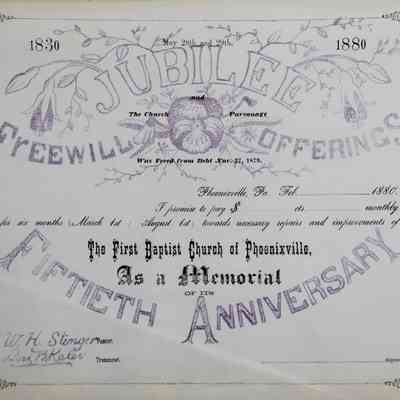 1830 May 28th and 29th, 1880
JUBILEE
and
The Church Parsonage
FREEWILL OFFERINGS
Was Freed from Debt Nov. 22, 1879.
Phoenixville, Pa. Feb. 1880.
I promise to pay $ cts. monthly
for six months (March 1st - August 1st) towards necessary repairs and improvements of
The First Baptist Church of Phoenixville,
As a Memorial
OF ITS
FIFTIETH ANNIVERSARY
W. H. Stinger Pastor.
Treasurer.